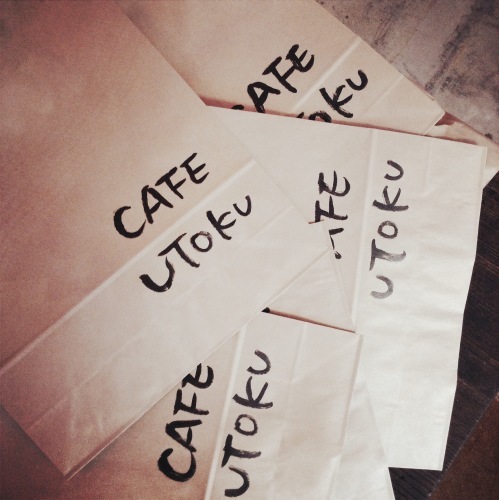 CAFE
UTOKU
CAFE
UTOKU
AFE
UTOKU
CAFE
UTOKU